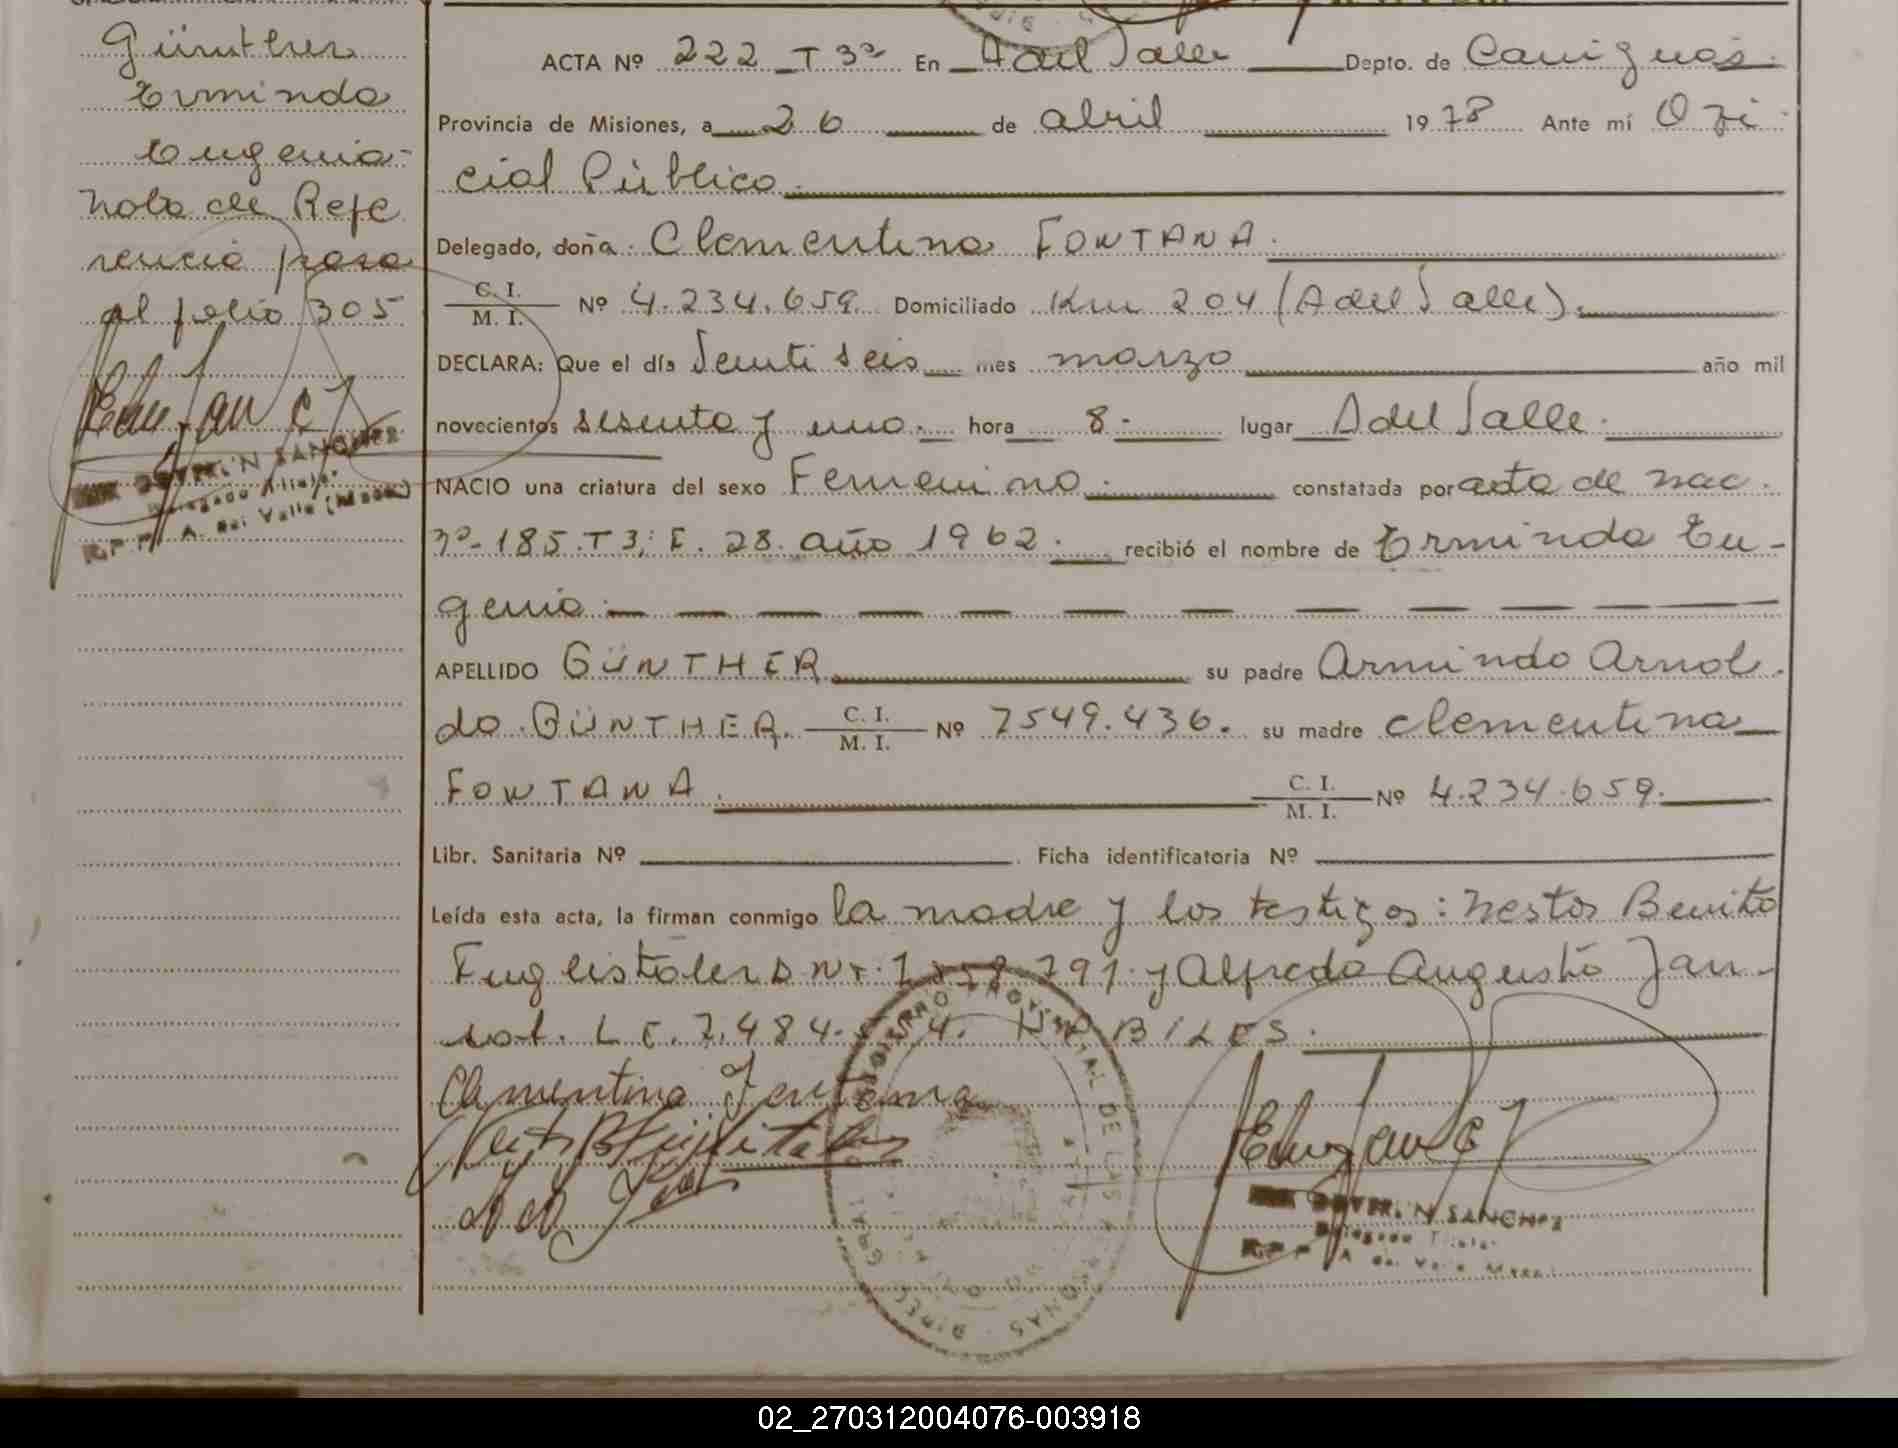 Günther
Erminda
Eugenia-
Nota de Refe
rencia pasa
al folio 305
SANCHEZ
ACTA Nº 222 T 3º En A del Valle Depto. de Cainguás.
Provincia de Misiones, a 26 de abril 1978 Ante mí Ofi-
cial Público.
Delegado, doña Clementina FONTANA.
C. I.
M. I. Nº 4.234.659. Domiciliado Km 204 (A del Valle).
DECLARA: Que el día Veinti seis mes marzo año mil
novecientos sesenta y uno. hora 8. lugar A del Valle.
NACIO una criatura del sexo Femenino. constatada por acta de nac.
Nº 185. T 3; F. 28. año 1962. recibió el nombre de Erminda Eu-
genia.
APELLIDO GÜNTHER su padre Armindo Arnol-
do GÜNTHER. C. I.
M. I. Nº 7549.436. su madre Clementina
FONTANA. C. I.
M. I. Nº 4.234.659.
Libr. Sanitaria Nº Ficha identificatoria Nº
Leída esta acta, la firman conmigo la madre y los testigos: Nestor Benito
y Alfredo Augusto Jan-
L E. HABILES.
Clementina Fontana
REGISTRO PROVINCIAL DE LAS PERSONAS
SANCHEZ
02_270312004076-003918